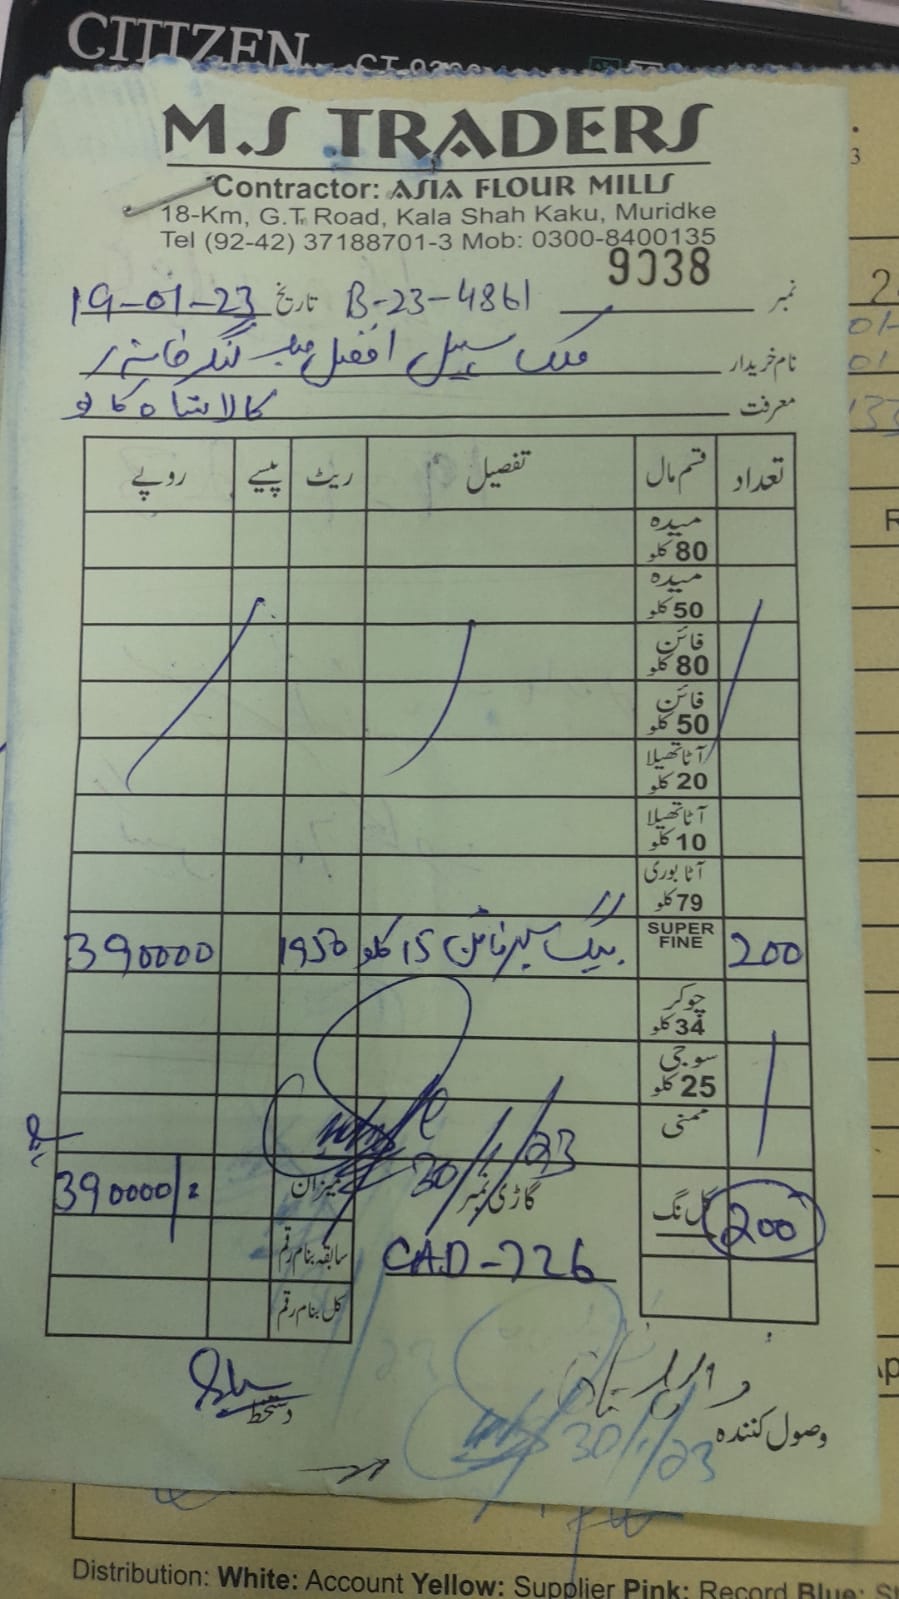 CITIZEN
M.S TRADERS
Contractor: ASIA FLOUR MILLS
18-Km, G.T. Road, Kala Shah Kaku, Muridke
Tel (92-42) 37188701-3 Mob: 0300-8400135
9038
نمبر B-23-4861 تاریخ 19-01-23
نام خریدار ملک سہیل افضل لنگر خانہ
معرفت کالا شاہ کاکو
تعداد قسم مال تفصیل ریٹ پیسے روپے
میدہ 80 کلو
میدہ 50 کلو
فائن 80 کلو
فائن 50 کلو
آٹا تھیلا 20 کلو
آٹا تھیلا 10 کلو
آٹا بوری 79 کلو
200 SUPER FINE بیگ سپر فائن 15 کلو 1950 390000
چوکر 34 کلو
سوجی 25 کلو
ممنی
30/1/23
کل نگ 200 گاڑی نمبر میزان 390000/=
CAD-726 سابقہ بنام رقم
کل بنام رقم
وصول کنندہ دستخط
30/1/23
Distribution: White: Account Yellow: Supplier Pink: Record Blue: